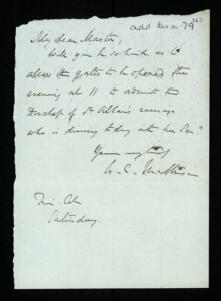 add ms a 79
My dear Master,
Will you be so kind as to
allow the gates to be opened this
evening at 11 to admit the
Duchess of St Albans carriage
who is dining to day with her Son?
Yours
Trin. Coll
Saturday.